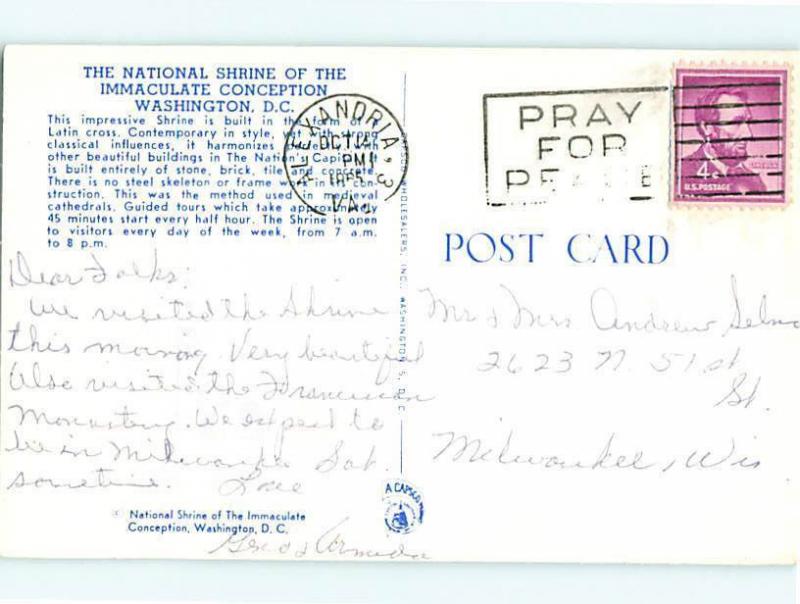 THE NATIONAL SHRINE OF THE
IMMACULATE CONCEPTION
WASHINGTON, D.C.
This impressive Shrine is built in the form of a
Latin cross. Contemporary in style, yet with strong
classical influences, it harmonizes well with
other beautiful buildings in The Nation's Capital. It
is built entirely of stone, brick, tile and concrete.
There is no steel skeleton or frame work in its con-
struction. This was the method used in medieval
cathedrals. Guided tours which take approximately
45 minutes start every half hour. The Shrine is open
to visitors every day of the week, from 7 a.m.
to 8 p.m.
Dear Folks:
We visited the Shrine
this morning. Very beautiful
Also visited the Franciscan
Monastery. We expect to
be in Milwaukee Sat.
sometime. Love
© National Shrine of The Immaculate
Conception, Washington, D. C.
& Armeda
WHOLESALERS, INC. WASHINGTON 5, D. C.
A CAPSCO
ALEXANDRIA, 3
OCT
PM
VA.
PRAY
FOR
PEACE
4¢
U.S. POSTAGE
POST CARD
Mr & Mrs Andrew
2623 N. 51 st
St.
Milwaukee, Wis